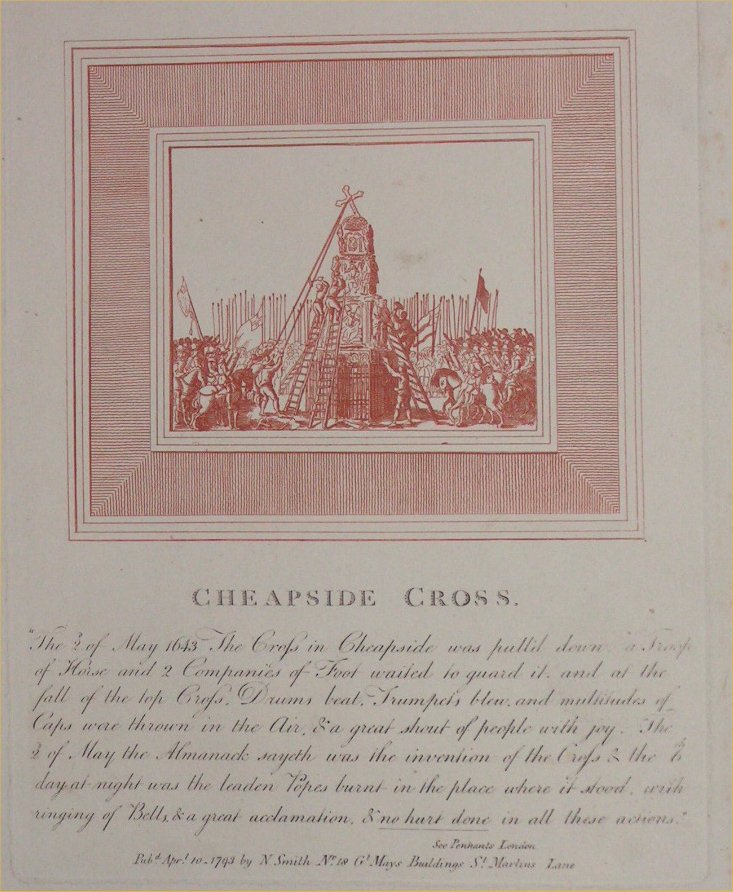 CHEAPSIDE CROSS.
"The 2 of May 1643 The Croſs in Cheapside was pull'd down, a Troop
of Horse and 2 Companies of Foot waited to guard it, and at the
fall of the top Croſs, Drums beat, Trumpets blew, and multitudes of
Caps were thrown in the Air, & a great shout of people with joy. The
2 of May the Almanack sayeth was the invention of the Croſs & the 6th
day at night was the leaden Popes burnt in the place where it stood, with
ringing of Bells, & a great acclamation, & no hurt done in all these actions."
See Pennants London
Pubd. Aprl. 10. 1793 by N Smith No. 18 Gt. Mays Buildings St. Martins Lane